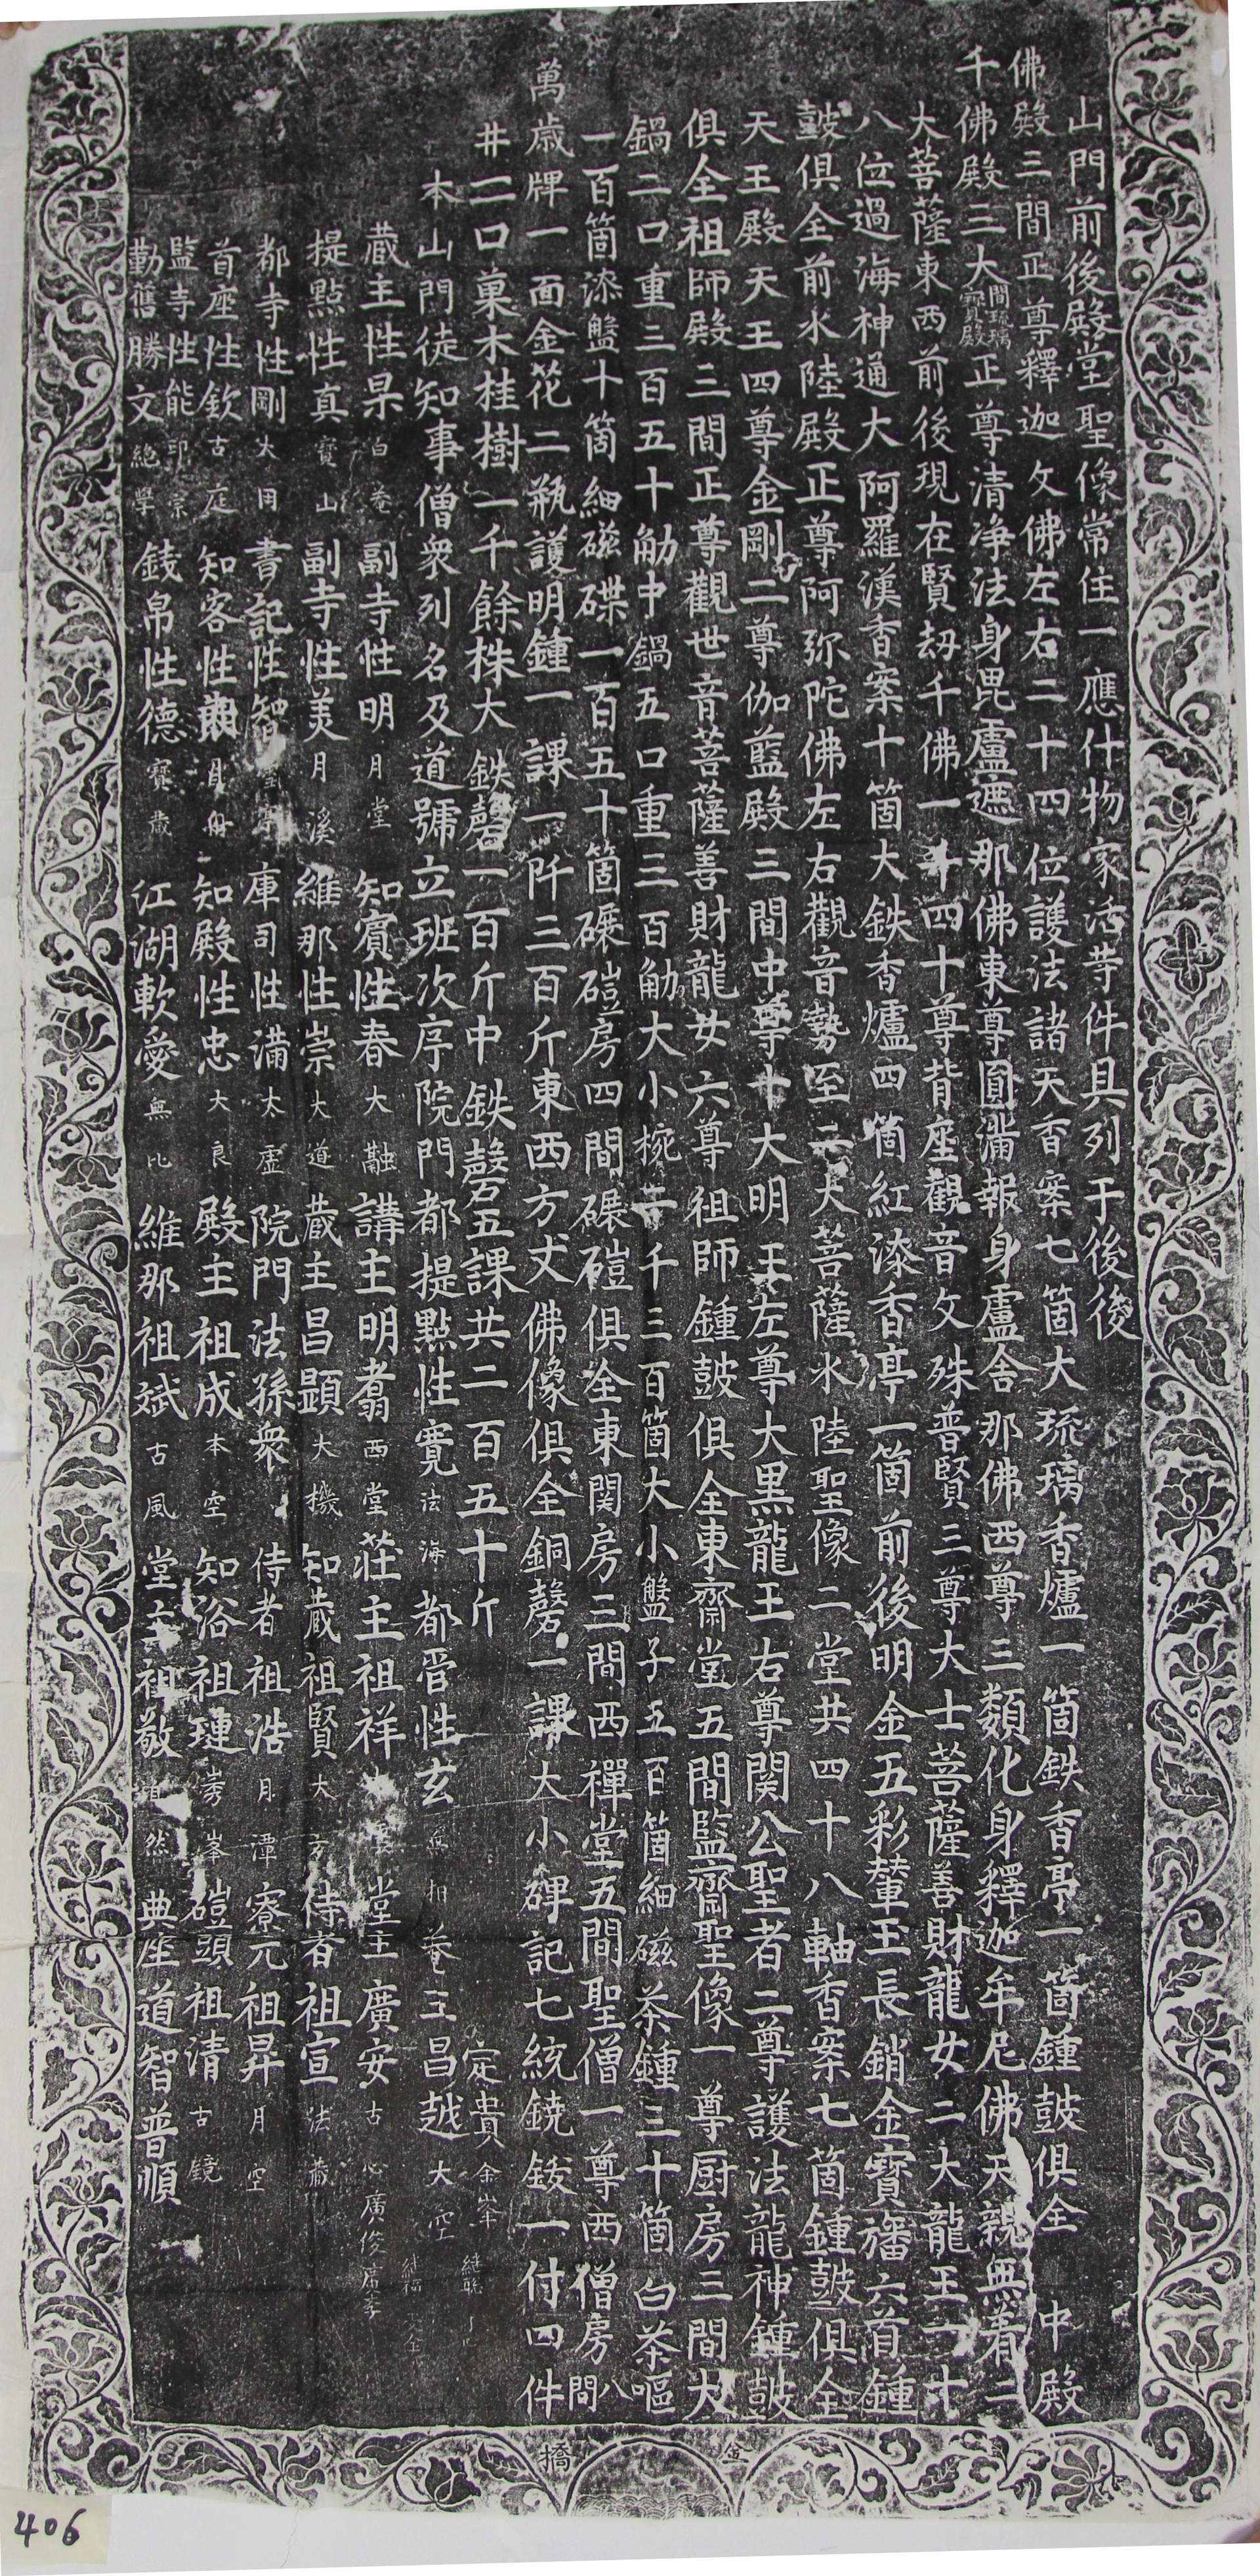 山門前後殿堂聖像常住一應什物家活等件具列于後後
佛殿三間正尊釋迦文佛左右二十四位護法諸天香案七箇大琉璃香爐一箇鉄香亭一箇鍾鼓俱全中殿
千佛殿三大間琉璃寳殿正尊清净法身毘盧遮那佛東尊圓滿報身盧舍那佛西尊三類化身釋迦牟尼佛天親無着二
大菩薩東西前後現在賢刧千佛一千四十尊背座觀音文殊普賢三尊大士菩薩善財龍女二大龍王一十
八位過海神通大阿羅漢香案十箇大鉄香爐四箇紅漆香亭一箇前後明金五彩輦王長銷金寳旛六首鍾
鼓俱全前水陸殿正尊阿弥陀佛左右觀音勢至二大菩薩水陸聖像二堂共四十八軸香案七箇鍾鼓俱全
天王殿天王四尊金剛二尊伽藍殿三間中尊十大明王左尊大黑龍王右尊関公聖者二尊護法龍神鍾鼓
俱全祖師殿三間正尊觀世音菩薩善財龍女六尊祖師鍾鼓俱全東齋堂五間監齋聖像一尊厨房三間大
鍋二口重二百五十觔中鍋五口重三百觔大小椀一千三百箇大小盤子五百箇細磁茶鍾三十箇白茶甌
一百箇漆盤十箇細磁碟一百五十箇碾磑房四間碾磑俱全東関房三間西禪堂五間聖僧一尊西僧房八間
萬歲牌一面金花二瓶護明鍾一課一阡三百斤東西方丈佛像俱全銅磬一課大小碑記七統鐃鈸一付四件
井二口菓木桂樹一千餘株大鉄磬一百斤中鉄磬五課共二百五十斤
本山門徒知事僧衆列名及道號立班次序院門都提點性寬法海都管性玄無相菴主昌越大空定貴金峯
藏主性杲白菴副寺性明月堂知賓性春大融講主明翥西堂莊主祖祥堂主廣安古心廣俊廣李
提點性真寳山副寺性美月溪維那性崇大道藏主昌顕大機知藏祖賢大方侍者祖宣法藏
都寺性剛大用書記性智庫司性滿太虛院門法孫衆侍者祖浩月潭寮元祖昇月空
首座性欽古庭知客性知殿性忠大良殿主祖成本空知浴祖璉秀峯磑頭祖清古鏡
監寺性能印宗
勤舊勝文絶學錢帛性德寳歲江湖軟愛無比維那祖斌古風堂主祖敬自然典座道智普順
金橋
406